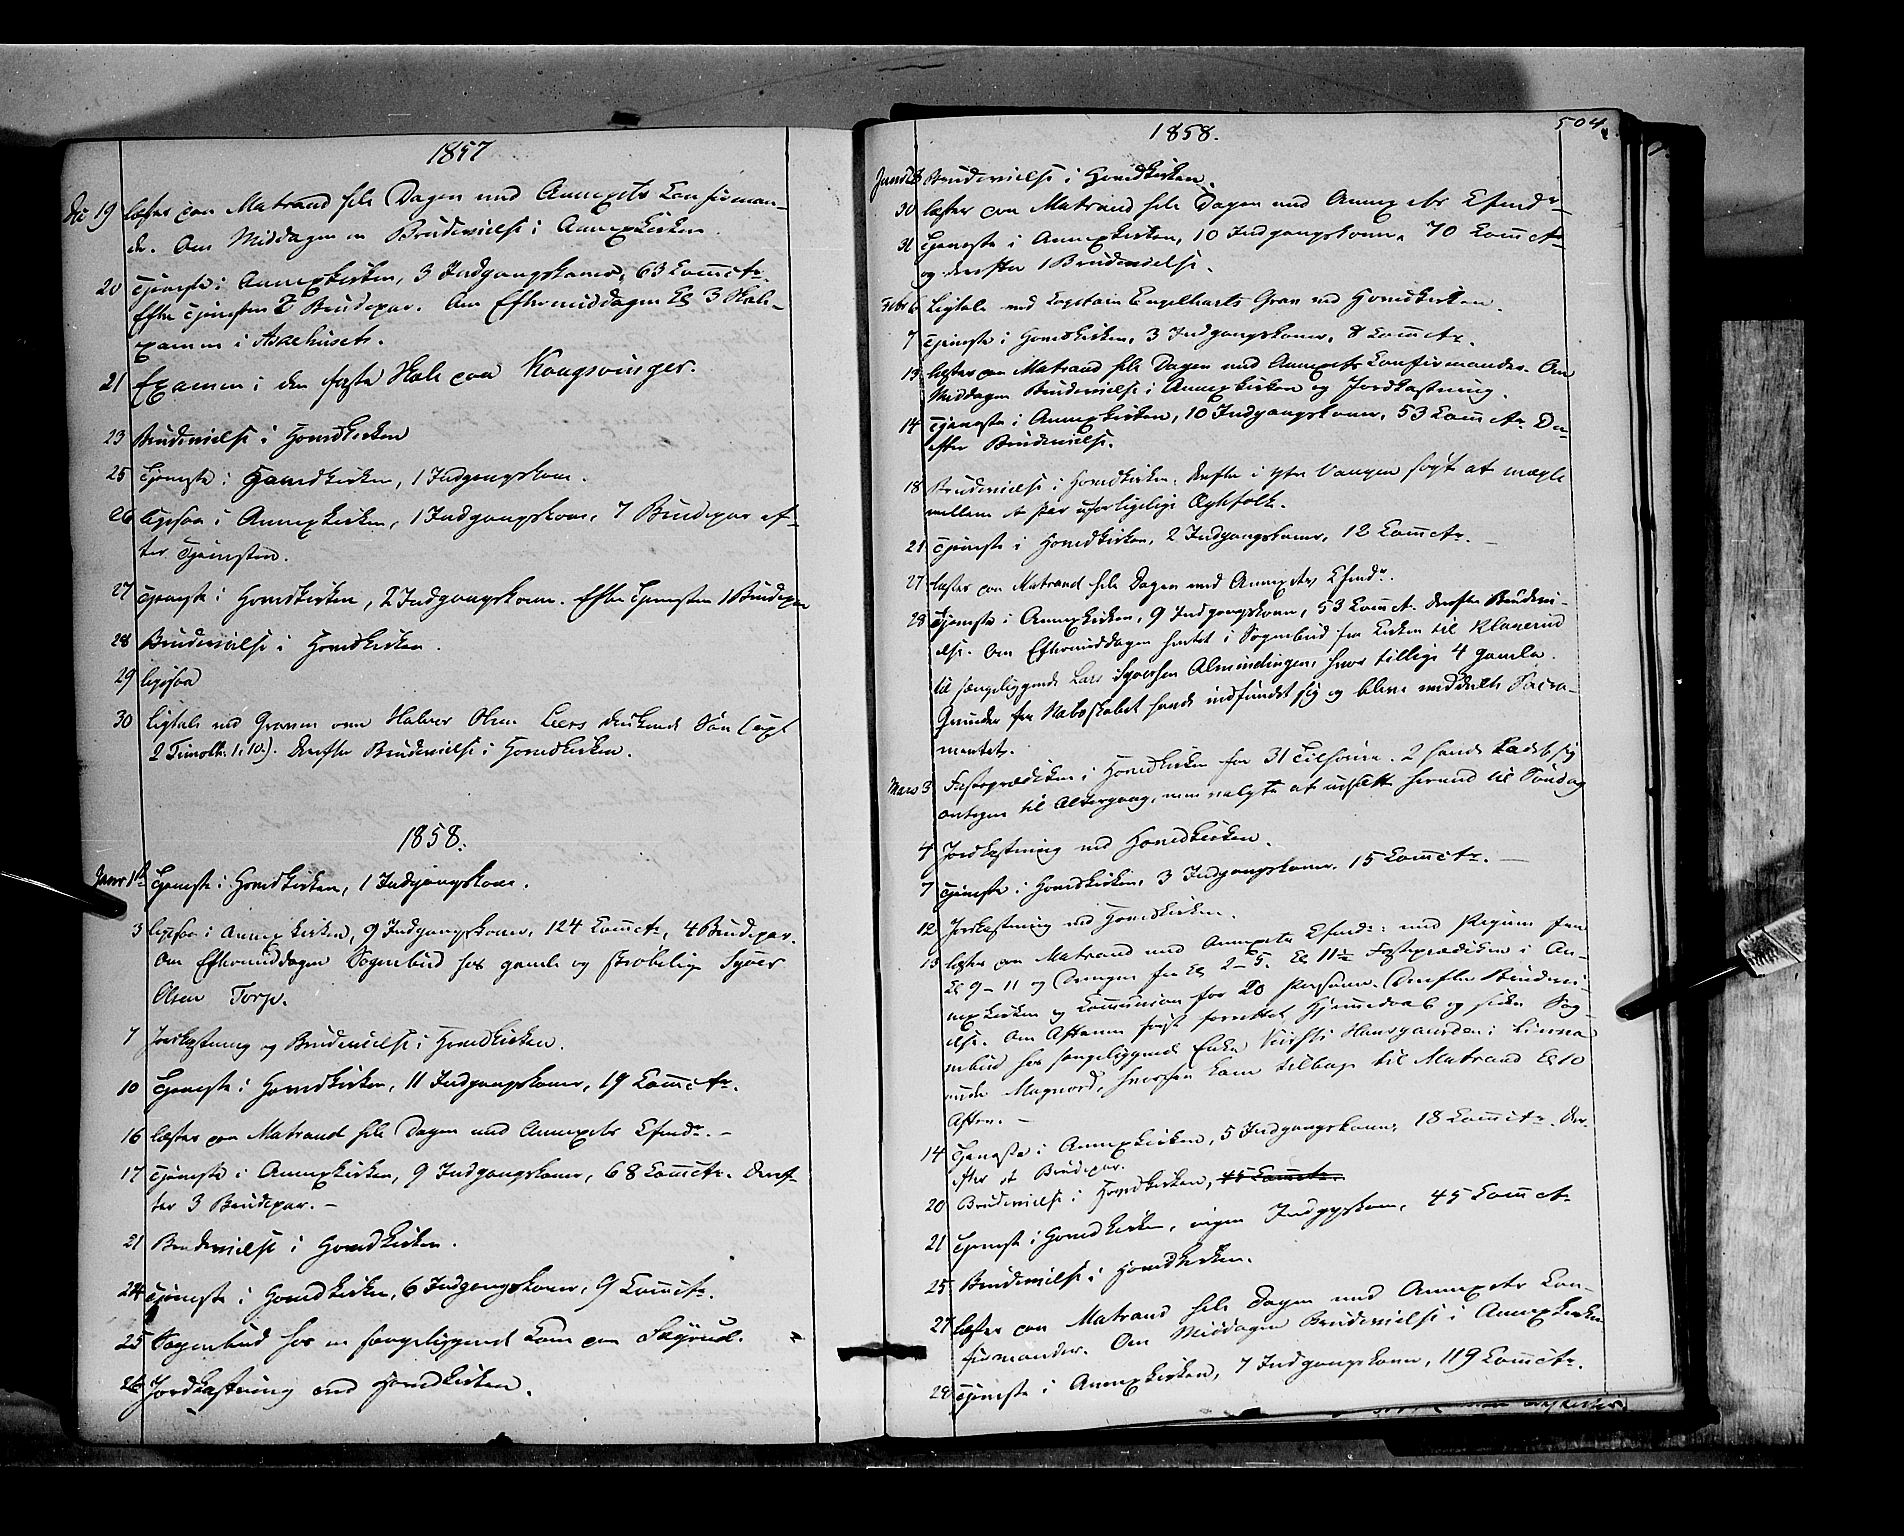 1857
Dec 19 læste paa Matrand hele Dagen med Annexets Confirman-
der. Om Middagen en Brudevielse i Annexkirken
20 Tjeneste i Annexkirken, 3 Indgangskoner, 63 Comctr.
Efter Tjenesten 2 Brudepar. Om Eftermiddagen Kl 3 Skole-
examen i
21 Examen i den faste Skole paa Kongsvinger.
23 Brudevielse i Hovedkirken
25 Tjeneste i Hovedkirken, 1 Indgangskone.
26 ligesaa i Annexkirken, 1 Indgangskone, 7 Brudepar ef-
ter Tjenesten.
27 Tjeneste i Hovedkirken, 2 Indgangskoner. Efter Tjenesten 1 Brudepar
28 Brudevielse i Hovedkirken.
29 ligesaa
30 Ligtale ved Graven over Halvor Olsen Søn (Text
2 Timoth. 1, 10.). Derefter Brudevielse i Hovedkirken.
1858.
Janr 1ste Tjeneste i Hovedkirken, 1 Indgangskone.
3 ligesaa i Annexkirken, 9 Indgangskoner, 124 Comctr, 4 Brudepar.
Om Eftermiddagen Sognebud hos gamle og skrøbelige Syver
Olsen Torp.
7 Jordkastning og Brudevielse i Hovedkirken.
10 Tjeneste i Hovedkirken, 11 Indgangskoner, 19 Comctr.
16 læste paa Matrand hele Dagen med Annexets Cfmdr. –
17 Tjeneste i Annexkirken, 9 Indgangskoner, 68 Comctr. Deref-
ter 3 Brudepar. –
21 Brudevielse i Hovedkirken.
24 Tjeneste i Hovedkirken, 6 Indgangskoner, 9 Comctr.
25 Sognebud hos en sengeliggende Kone paa Skyrud.
26 Jordkastning ved Hovedkirken.
1858.
504.
Brudevielse i Hovedkirken.
30 læste paa Matrand hele Dagen med Annexets Cfmdr
31 Tjeneste i Annexkirken, 10 Indgangskoner, 70 Comctr
og derefter 1 Brudevielse.
Febr 6 Ligtale ved Captain Engelharts Grav ved Hovedkirken.
7 Tjeneste i Hovedkirken, 3 Indgangskoner, 8 Comctr.
13 læste paa Matrand hele Dagen med Annexets Confirmander. Om
Middagen Brudevielse i Annexkirken og Jordkastning.
14 Tjeneste i Annexkirken, 10 Indgangskoner, 53 Comctr. Der-
efter Brudevielse.
18 Brudevielse i Hovedkirken. Derefter i Vangen søgt at mægle
mellem et Par uforligelige Ægtefolk.
21 Tjeneste i Hovedkirken, 2 Indgangskoner, 12 Comctr. –
27 læste paa Matrand hele Dagen med Annexets Cfmdr.
28 Tjeneste i Annexkirken, 9 Indgangskoner, 53 Comctr. Derefter Brudevi-
else. Om Eftermiddagen hentet i Sognebud fra Kirken til Klanerud
til sengeliggende Lars Syversen Almindingen, hvor tillige 4 gamle
Qvinder fra Naboskabet havde indfundet sig og bleve meddelte Sacra-
mentet.
Mars 3 Fasteprædiken i Hovedkirken for 31 Tilhørere. 2 havde ladet sig
antegne til Altergang, men valgte at udsætte hermed til Søndag
4 Jordkastning ved Hovedkirken.
7 Tjeneste i Hovedkirken, 3 Indgangskoner, 15 Comctr. –
12 Jordkastning ved Hovedkirken.
13 læste paa Matrand med Annexets Cfmdr: med Pigerne fra
Kl 9–11 og Drenge fra Kl 2–5. Kl 11½ Fasteprædiken i An-
nexkirken og Communion for 20 Personer. Derefter Brudevi-
else. Om Aftenen først forrettet Hjemmedaab og siden Sog-
nebud hos sengeliggende Enke Kirsti Hansgaarden i
under Magnor, hvorfra kom tilbage til Matrand Kl 10
Aften. –
14 Tjeneste i Annexkirken, 5 Indgangskoner, 18 Comctr. Der-
efter et Brudepar.
20 Brudevielse i Hovedkirken, 45 Comctr.
21 Tjeneste i Hovedkirken, ingen Indggskone, 45 Comctr
25 Brudevielse i Hovedkirken.
27 læste paa Matrand hele Dagen med Annexets Con-
firmander. Om Middagen Brudevielse i Annexkirken
28 Tjeneste i Annexkirken, 7 Indgangskoner, 119 Comctr.